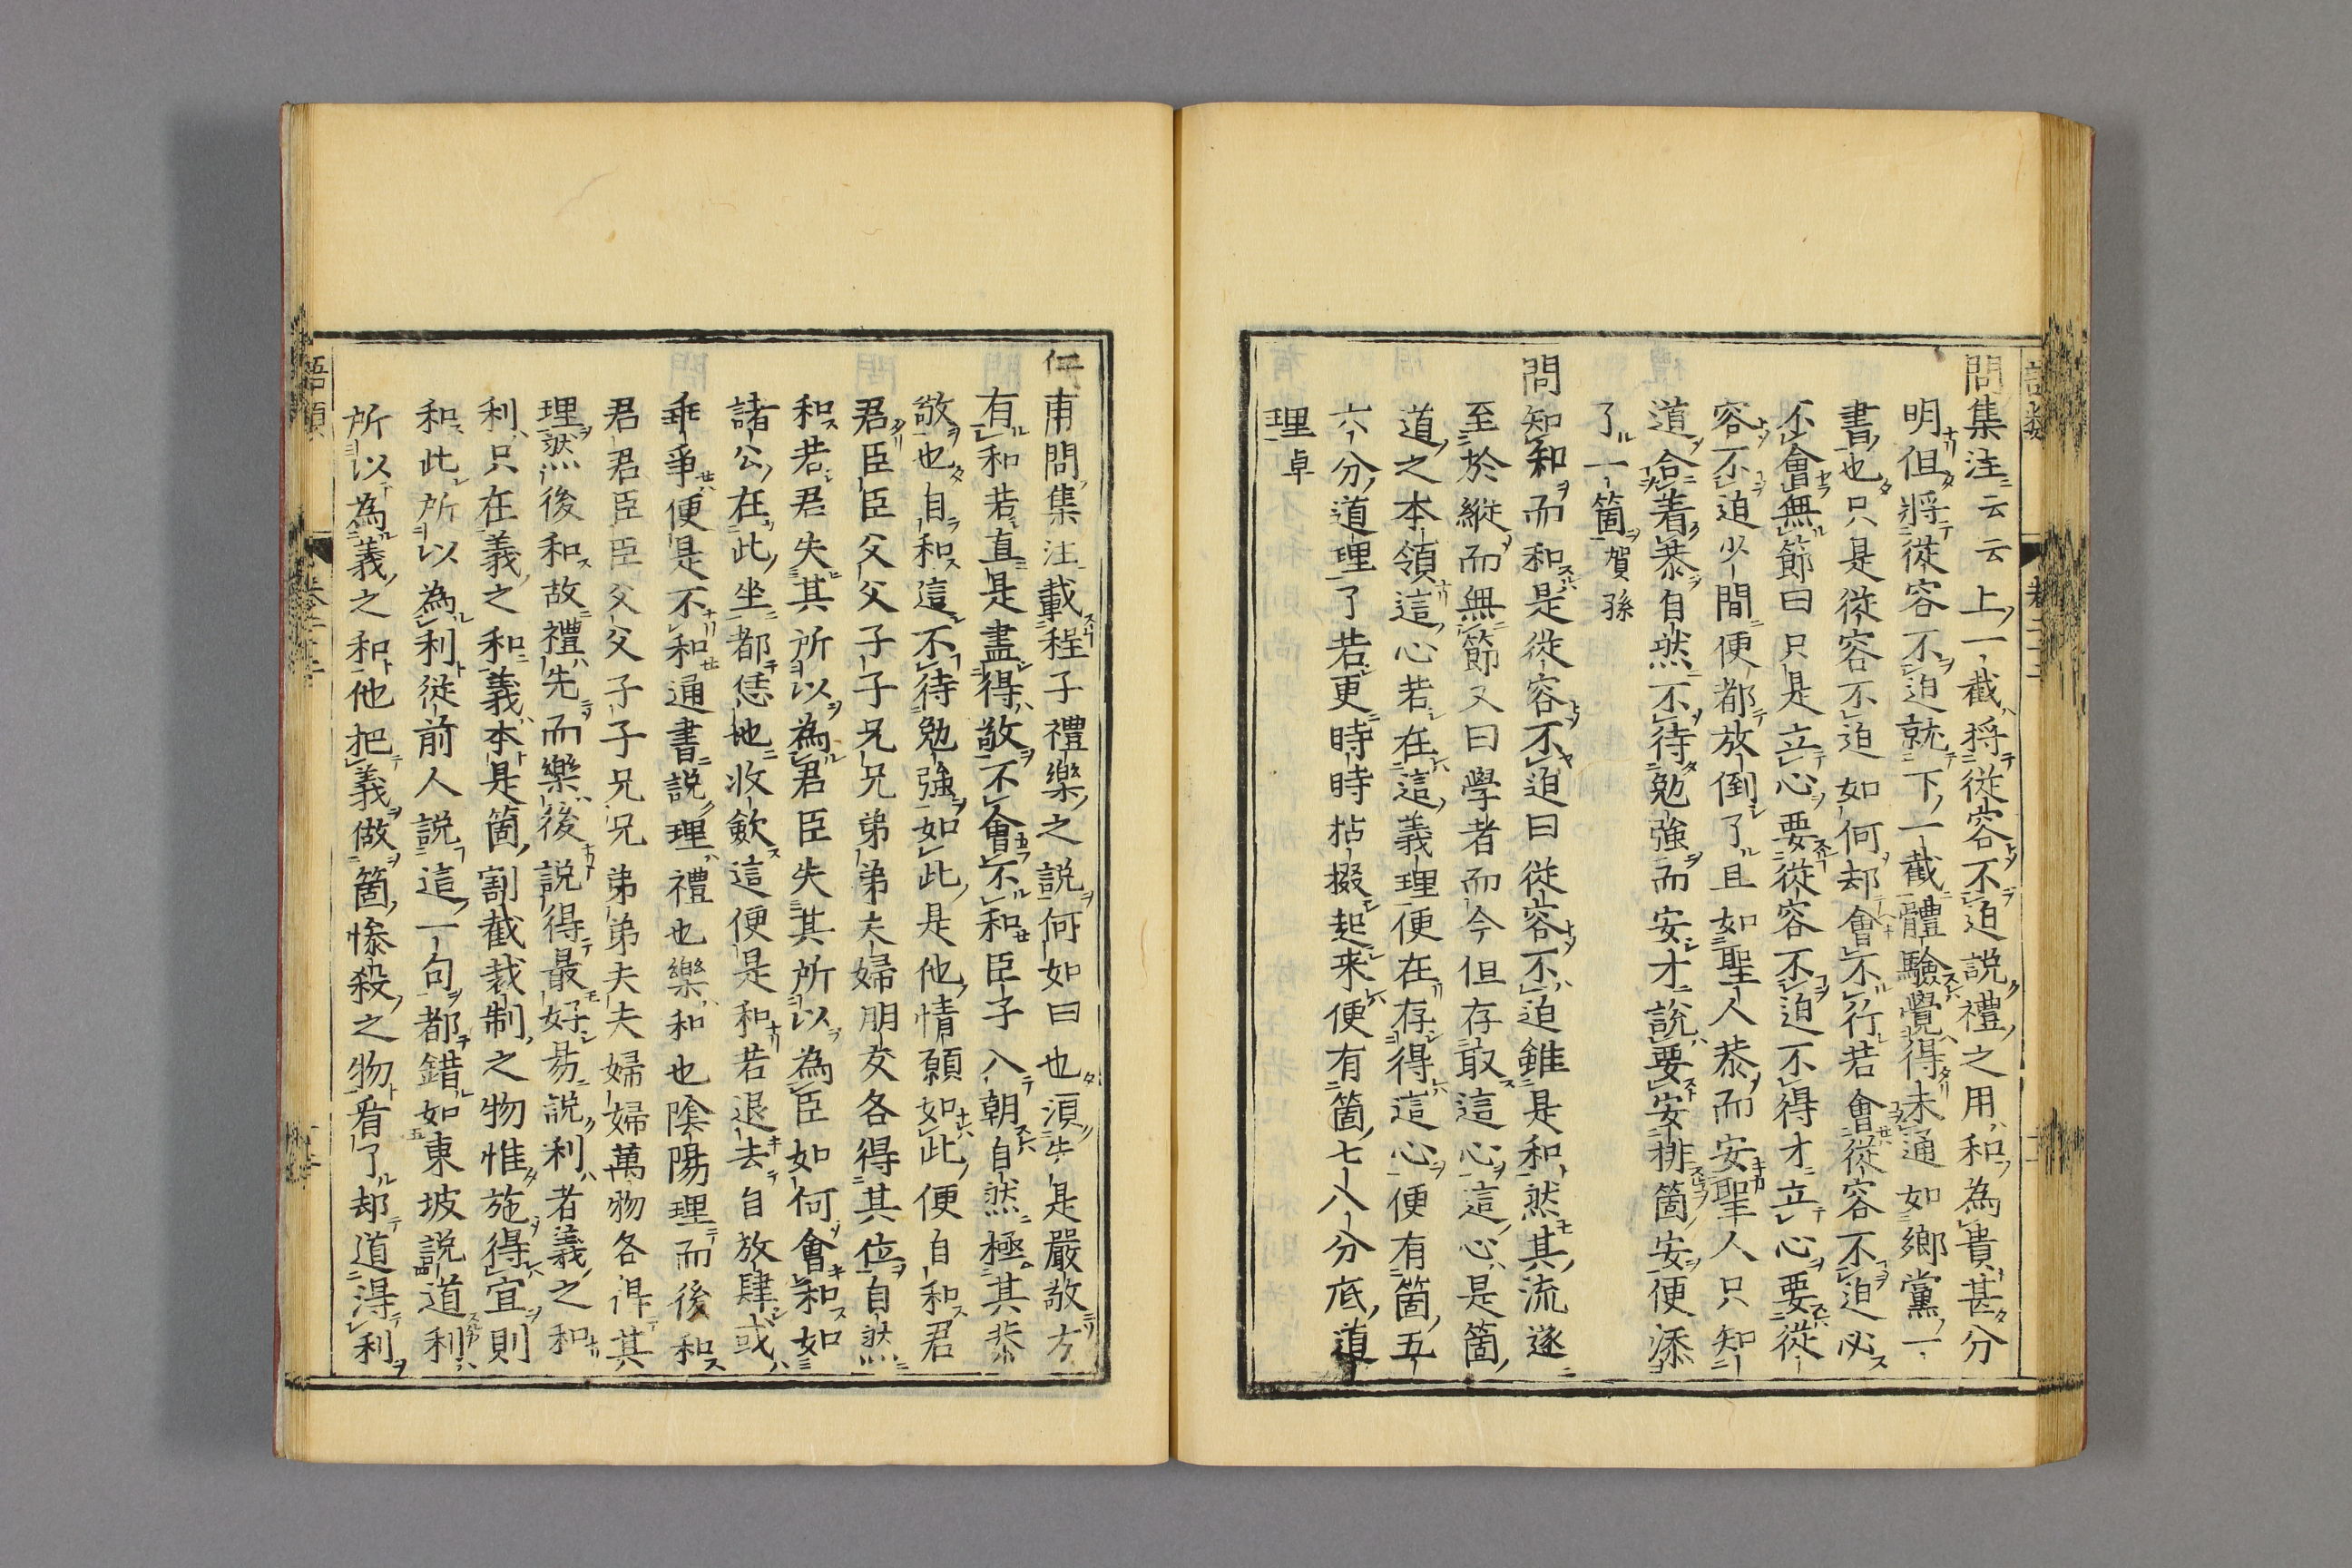 問集注云云上一截將從容不迫説禮之用和為貴甚分
明但將從容不迫就下一截體驗覺得未通如鄉黨一
書也只是從容不迫如何却會不行若會從容不迫必
不會無節曰只是立心要從容不迫不得才立心要從
容不迫少間便都放倒了且如聖人恭而安聖人只知
道合着恭自然不待勉強而安才説要安排箇安便添
了一箇賀孫
問知和而和是從容不迫曰從容不迫雖是和然其流遂
至於縱而無節又曰學者而今但存取這心這心是箇
道之本領這心若在這義理便在存得這心便有箇五
六分道理了若更時時拈掇起來便有箇七八分底道
理卓
仁甫問集注載程子禮樂之説何如曰也須先是嚴敬方
有和若直是盡得敬不會不和臣子入朝自然極其恭
敬也自和這不待勉強如此是他情願如此便自和君
君臣臣父父子子兄兄弟弟夫婦朋友各得其位自然
和若君失其所以為君臣失其所以為臣如何會和如
諸公在此坐都恁地收斂這便是和若退去自放肆或
乖爭便是不和通書説理禮也樂和也陰陽理而後和
君君臣臣父父子子兄兄弟弟夫夫婦婦萬物各得其
理然後和故禮先而樂後説得最好易説利者義之和
利只在義之和義本是箇割截裁制之物惟施得宜則
和此所以為利從前人説這一句都錯如東坡説道利
所以為義之和他把義做箇慘殺之物看了却道得利
語類
卷二十二